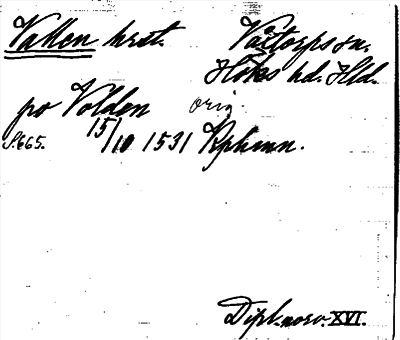 Vallen hrat. Vaitorps sn.
Höks hd. Hld.
po Volden orig.
S. 665. 15/10 1531 Kphmn.
Dipl. norv. XVI.